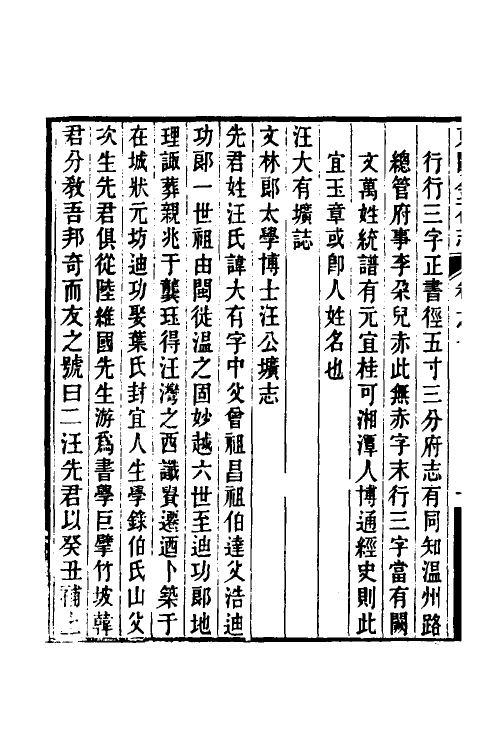 行行三字正書徑五寸三分府志有同知温州路
總管府事李朶兒赤此無赤字末行三字當有闕
文萬姓統譜有元宜桂可湘潭人博通經史則此
宜玉章或卽人姓名也
汪大有壙誌
文林郞太學博士汪公壙志
先君姓汪氏諱大有字中父曾祖昌祖伯達父浩迪
功郞一世祖由閩徙温之固妙越六世至迪功郞地
理諏葬親兆于龔珏得汪灣之西讖貲遷迺卜築于
在城狀元坊迪功娶葉氏封宜人生學錄伯氏山父
次生先君俱從陸維國先生游爲書學巨擘竹坡韓
君分教吾邦奇而友之號曰二汪先君以癸丑補上